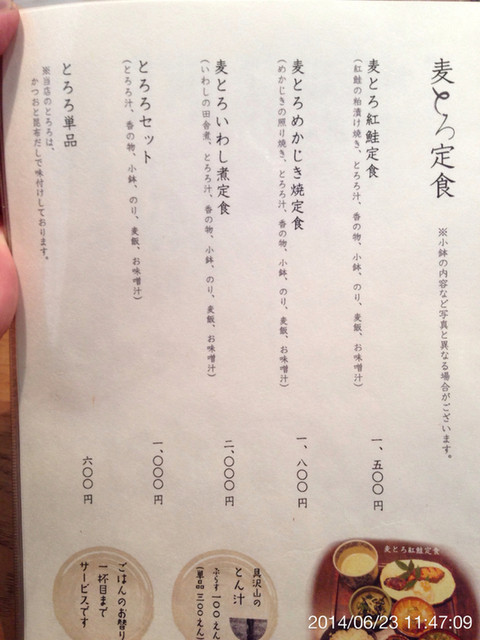 麦とろ定食
※小鉢の内容など写真と異なる場合がございます。
麦とろ紅鮭定食
(紅鮭の粕漬け焼き、とろろ汁、香の物、小鉢、のり、麦飯、お味噌汁)
一、五〇〇円
麦とろめかじき焼定食
(めかじきの照り焼き、とろろ汁、香の物、小鉢、のり、麦飯、お味噌汁)
一、八〇〇円
麦とろいわし煮定食
(いわしの田舎煮、とろろ汁、香の物、小鉢、のり、麦飯、お味噌汁)
二、〇〇〇円
とろろセット
(とろろ汁、香の物、小鉢、のり、麦飯、お味噌汁)
一、〇〇〇円
とろろ単品
※当店のとろろは、
かつおと昆布だしで味付けしております。
六〇〇円
麦とろ紅鮭定食
具沢山の
とん汁
ぷらす一〇〇えん
(単品三〇〇えん)
ごはんのお替り
一杯目まで
サービスです
2014/06/23 11:47:09